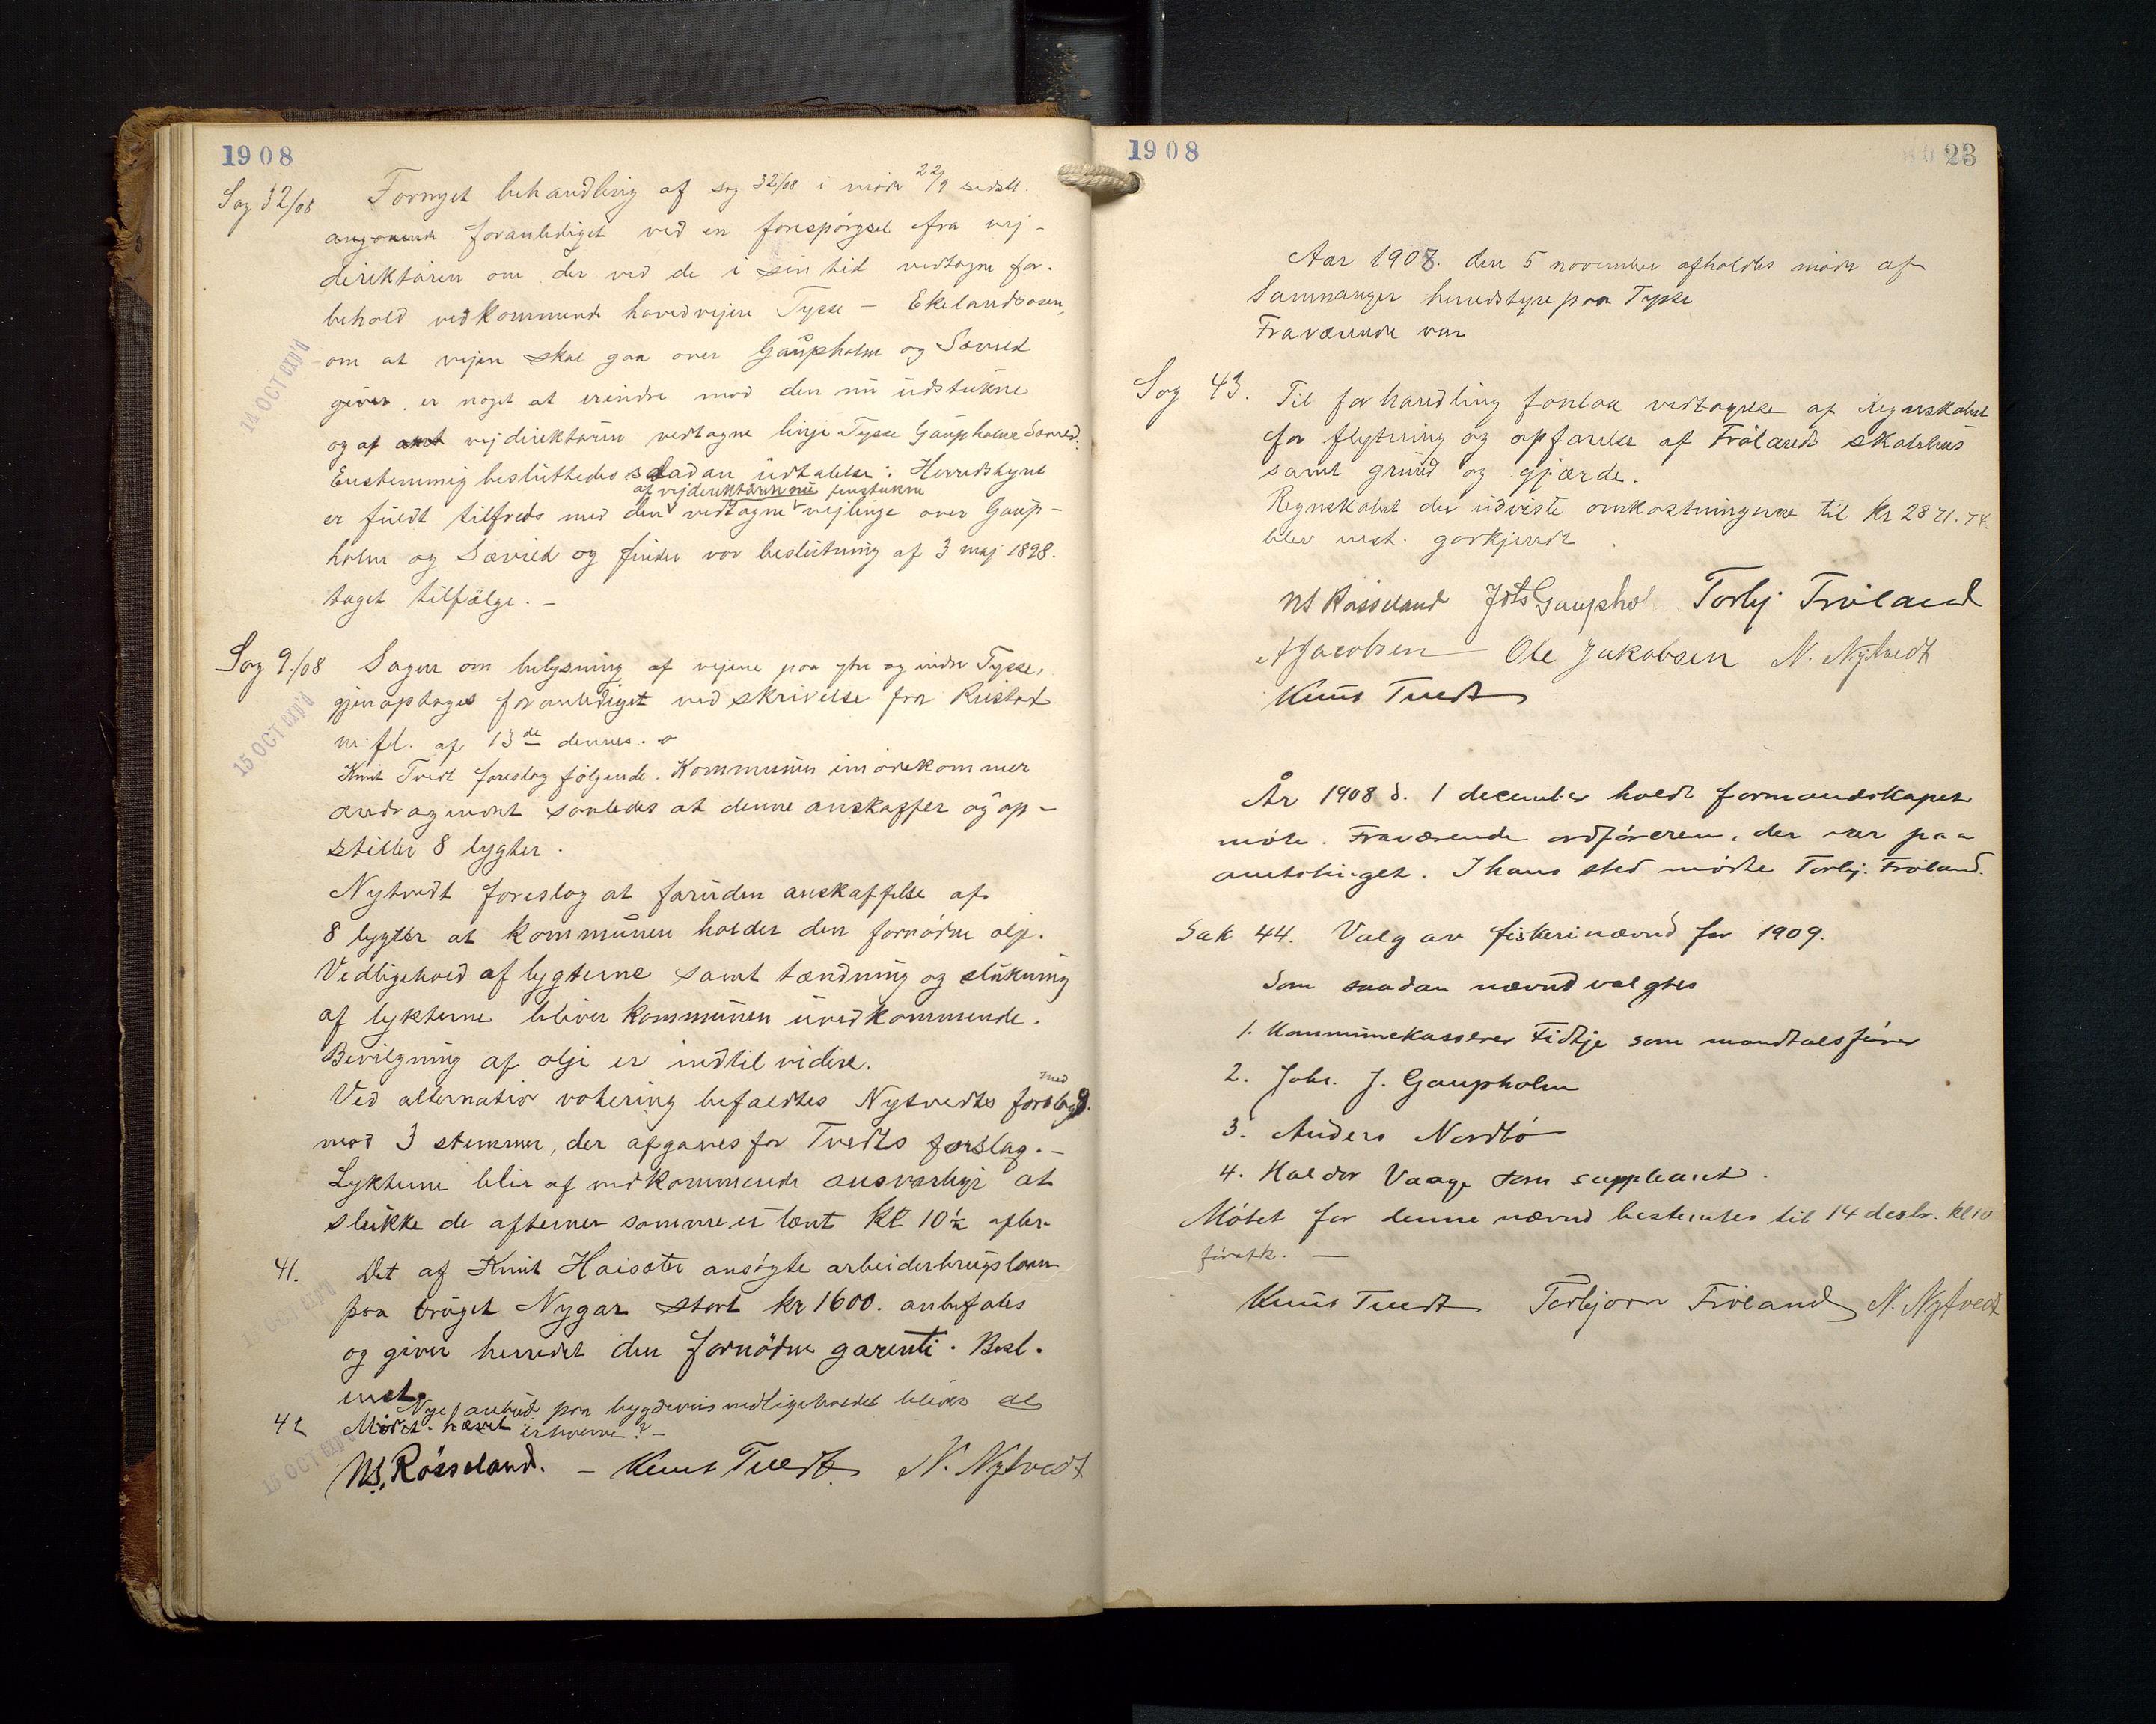 1908
Sag 32/08 Fornyet behandling af sag 32/08 i møde 22/9 sidstl.
angaaende foranlediget ved en forespörgsel fra vej-
direktören om der ved de i sin tid vedtagne for-
behold vedkommende hovedvejene Tysse - Ekelandsosen,
om at vejen skal gaa over Gaupholm og Sævild
giver er noget at erindre mod den nu udstukne
og af amt vejdirektören vedtagne linje Tysse Gaupholm Sævild.
14 OCT exp'd
Enstemmig besluttedes sladan udtalelse: Herredstyret
af vejdirektören nu
er fuldt tilfreds med den vedtagne vejlinje over Gaup-
holm og Sævild og finder vor beslutning af 3 maj 1898.
taget tilfölge. -
Sag 9./08 Sagen om belysning af vejene paa ytre og indre Tysse,
gjenoptages foranlediget ved skrivelse fra Riistad
m. fl. af 13de dennes.
15 OCT exp'd
Knut Tvedt foreslog fölgende. Kommunen imödekommer
andragendet saaledes at denne anskaffer og op-
stiller 8 lygter.
Nytvedt foreslog at foruden anskaffelse af
8 lygter at kommunen holder den fornödne olje.
Vedligehold af lygterne samt tændning og slukning
af lykterne bliver kommunen uvedkommende.
Bevilgning af olje er indtil videre.
Ved alternativ votering befaldtes Nytvedts forslag med 9.
mod 3 stemmer, der afgaves for Tvedts forslag. -
Lykterne blir af vedkommende ansvarlige at
slukke de aftener somme er tænt kl. 10½ efter.
41. Det af Knut Haisæter ansögte arbeiderbrugslaan
paa bruget Nygar stort kr 1600. anbefales
og giver herredet den fornödne garenti. Besl.
enst.
42 Nye anbud paa bygdeveis vedligeholdet
Mödet hævet
15 OCT exp'd
NS. Rösseland. - Knut Tvedt N. Nytvedt
1908
23
Aar 1908. den 5 november afholdtes möde af
Samnanger herredstyre paa Tysse
Fraværende var
Sag 43. Til forhandling forelaa vedtagelse af regnskabet
for flytning og opförelse af Frölands skolehus
samt grund og gjærde.
Regnskabet der udviste omkostningerne til kr 2871.74.
blev enst. godkjendt.
NS Rösseland Gauphol Torbj Fröland
A Jacobsen Ole Jakobsen N. Nytvedt
Knut Tvedt
År 1908 d. 1 december holdt formandskapet
möte. Fraværende ordföreren, der var paa
amtstinget. I hans sted mödte Torbj. Fröland.
Sak 44. Valg av fiskerinævnd for 1909.
Som saadan nævnd valgtes
1. Kommunekasserer Tidtje som mandtalsförer
2. Johs. J. Gaupholm
3. Anders Nordbö
4. Haldor Vaage som suppleant.
Mötet for denne nævnd bestemtes til 14 desbr. kl 10
formk. -
Knut Tvedt Torbjörn Fröland N. Nytvedt